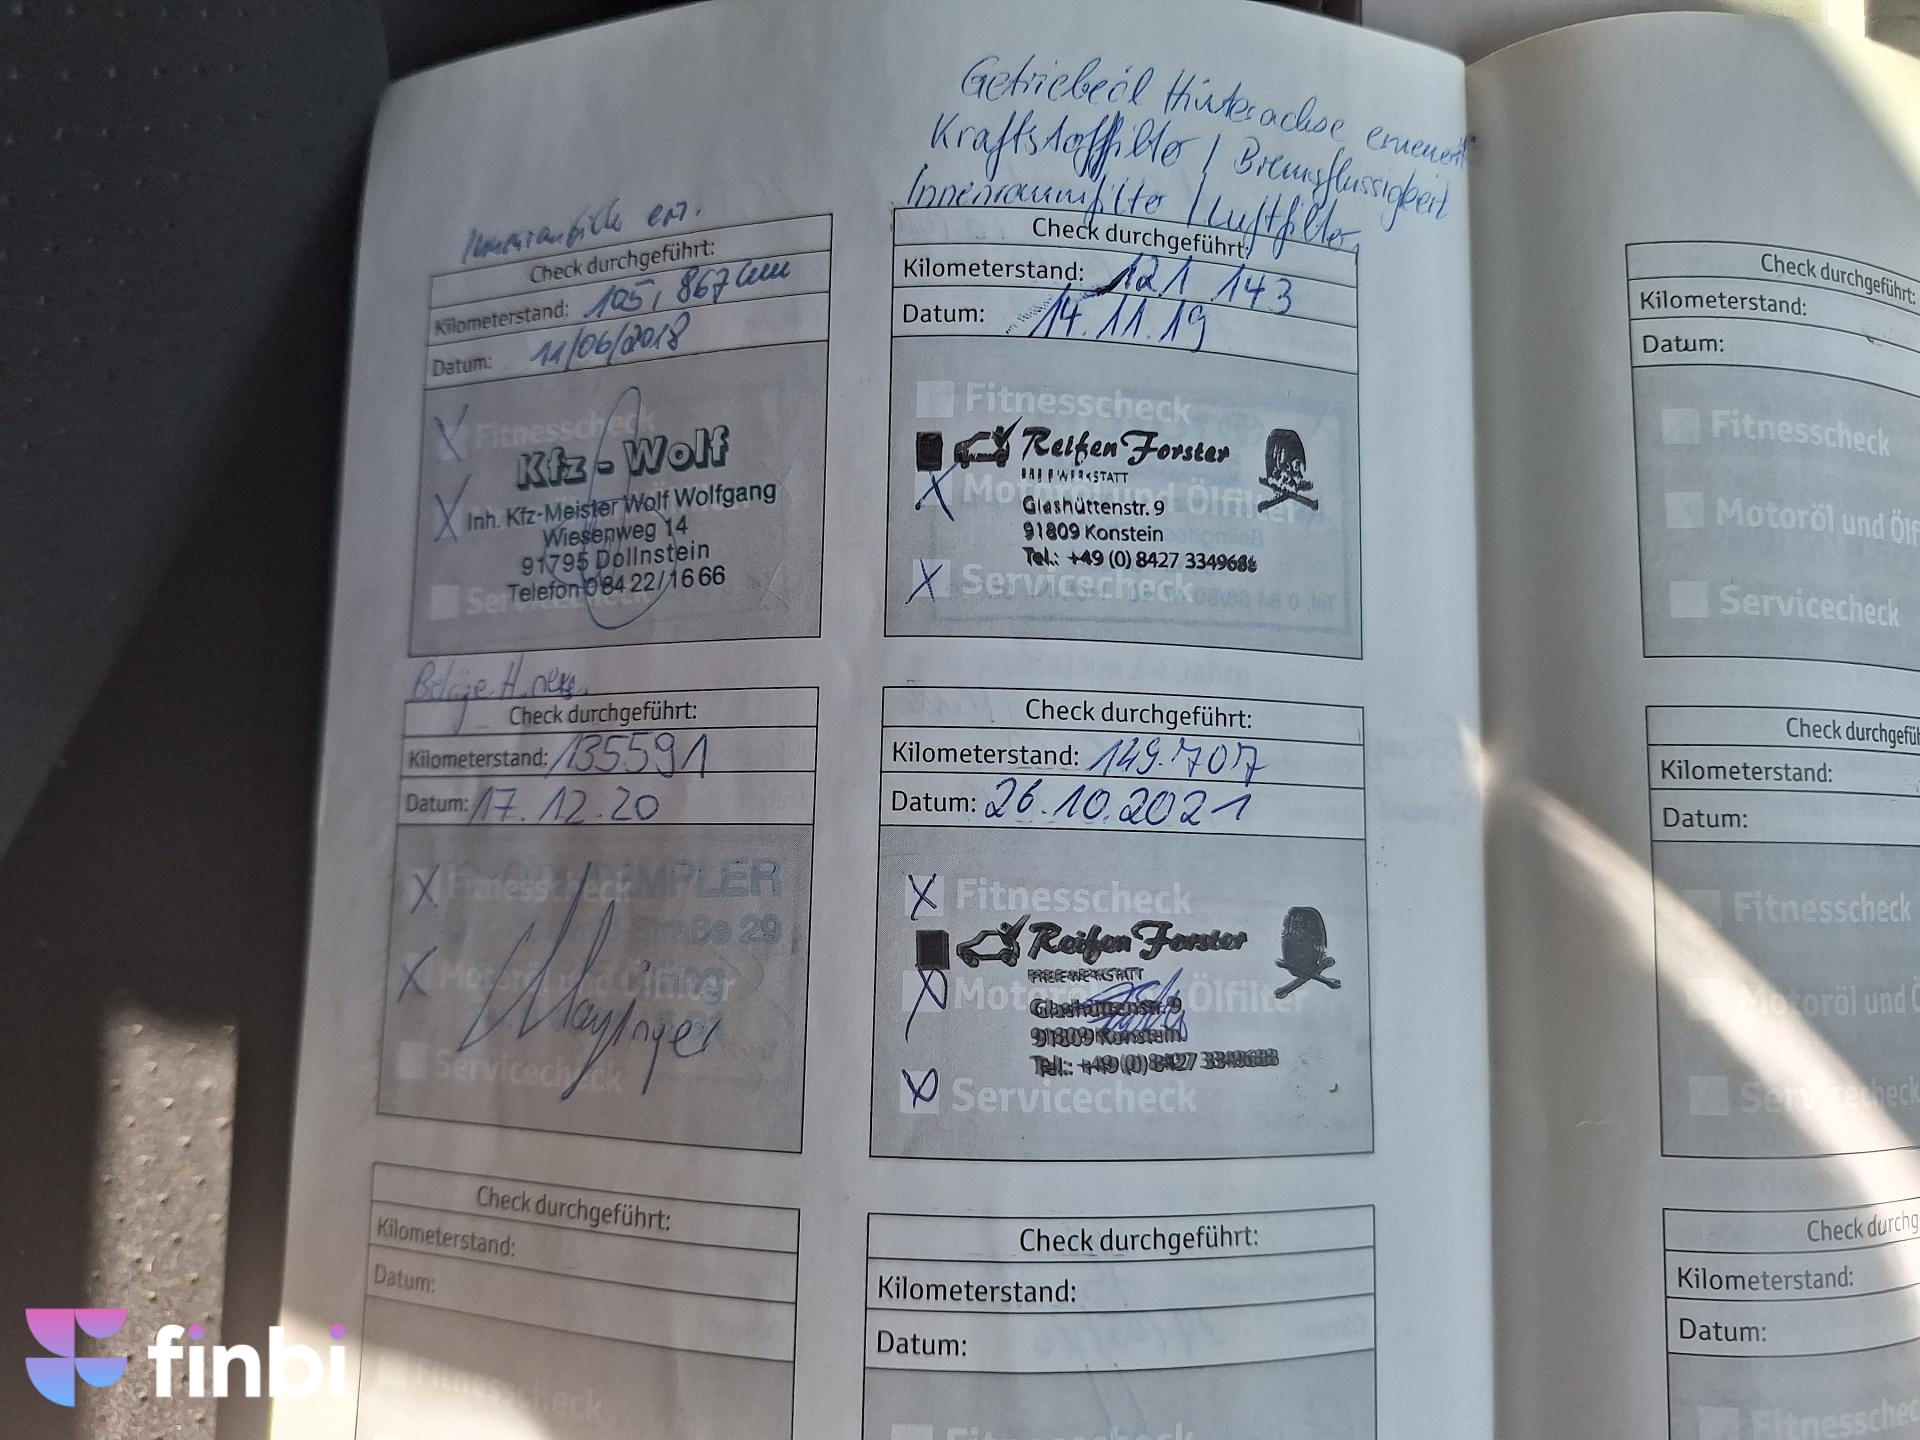 Innenraumfilter ern.
Check durchgeführt:
Kilometerstand: 105,867 km
Datum: 11/06/2018
Fitnesscheck
Kfz-Wolf
Inh. Kfz-Meister Wolf Wolfgang
Wiesenweg 14
91795 Dollnstein
Telefon 08422/1666
Servicecheck
Getriebeöl Hinterachse erneuert
Kraftstofffilter / Bremsflüssigkeit
Innenraumfilter / Luftfilter
Check durchgeführt:
Kilometerstand: 121 143
Datum: 14.11.19
Fitnesscheck
Reifen Forster
Motoröl und Ölfilter
Glashüttenstr. 9
91809 Konstein
Tel.: +49 (0) 8427 3349688
Servicecheck
Beläge H.
Check durchgeführt:
Kilometerstand: 135591
Datum: 17.12.20
Fitnesscheck
Straße 29
Motoröl und Ölfilter
Servicecheck
Check durchgeführt:
Kilometerstand: 149.707
Datum: 26.10.2021
Fitnesscheck
Reifen Forster
FREIE WERKSTATT
Motoröl und Ölfilter
Glashüttenstr. 9
91809 Konstein
Tel.: +49 (0) 8427 3349688
Servicecheck
Check durchgeführt:
Kilometerstand:
Datum:
Fitnesscheck
Check durchgeführt:
Kilometerstand:
Datum:
Fitnesscheck
Check durchgeführt:
Kilometerstand:
Datum:
Fitnesscheck
Motoröl und Ölf
Servicecheck
Check durchgefüh
Kilometerstand:
Datum:
Fitnesscheck
Motoröl und Ö
Servicecheck
Check durchg
Kilometerstand:
Datum:
Fitnesschec
finbi